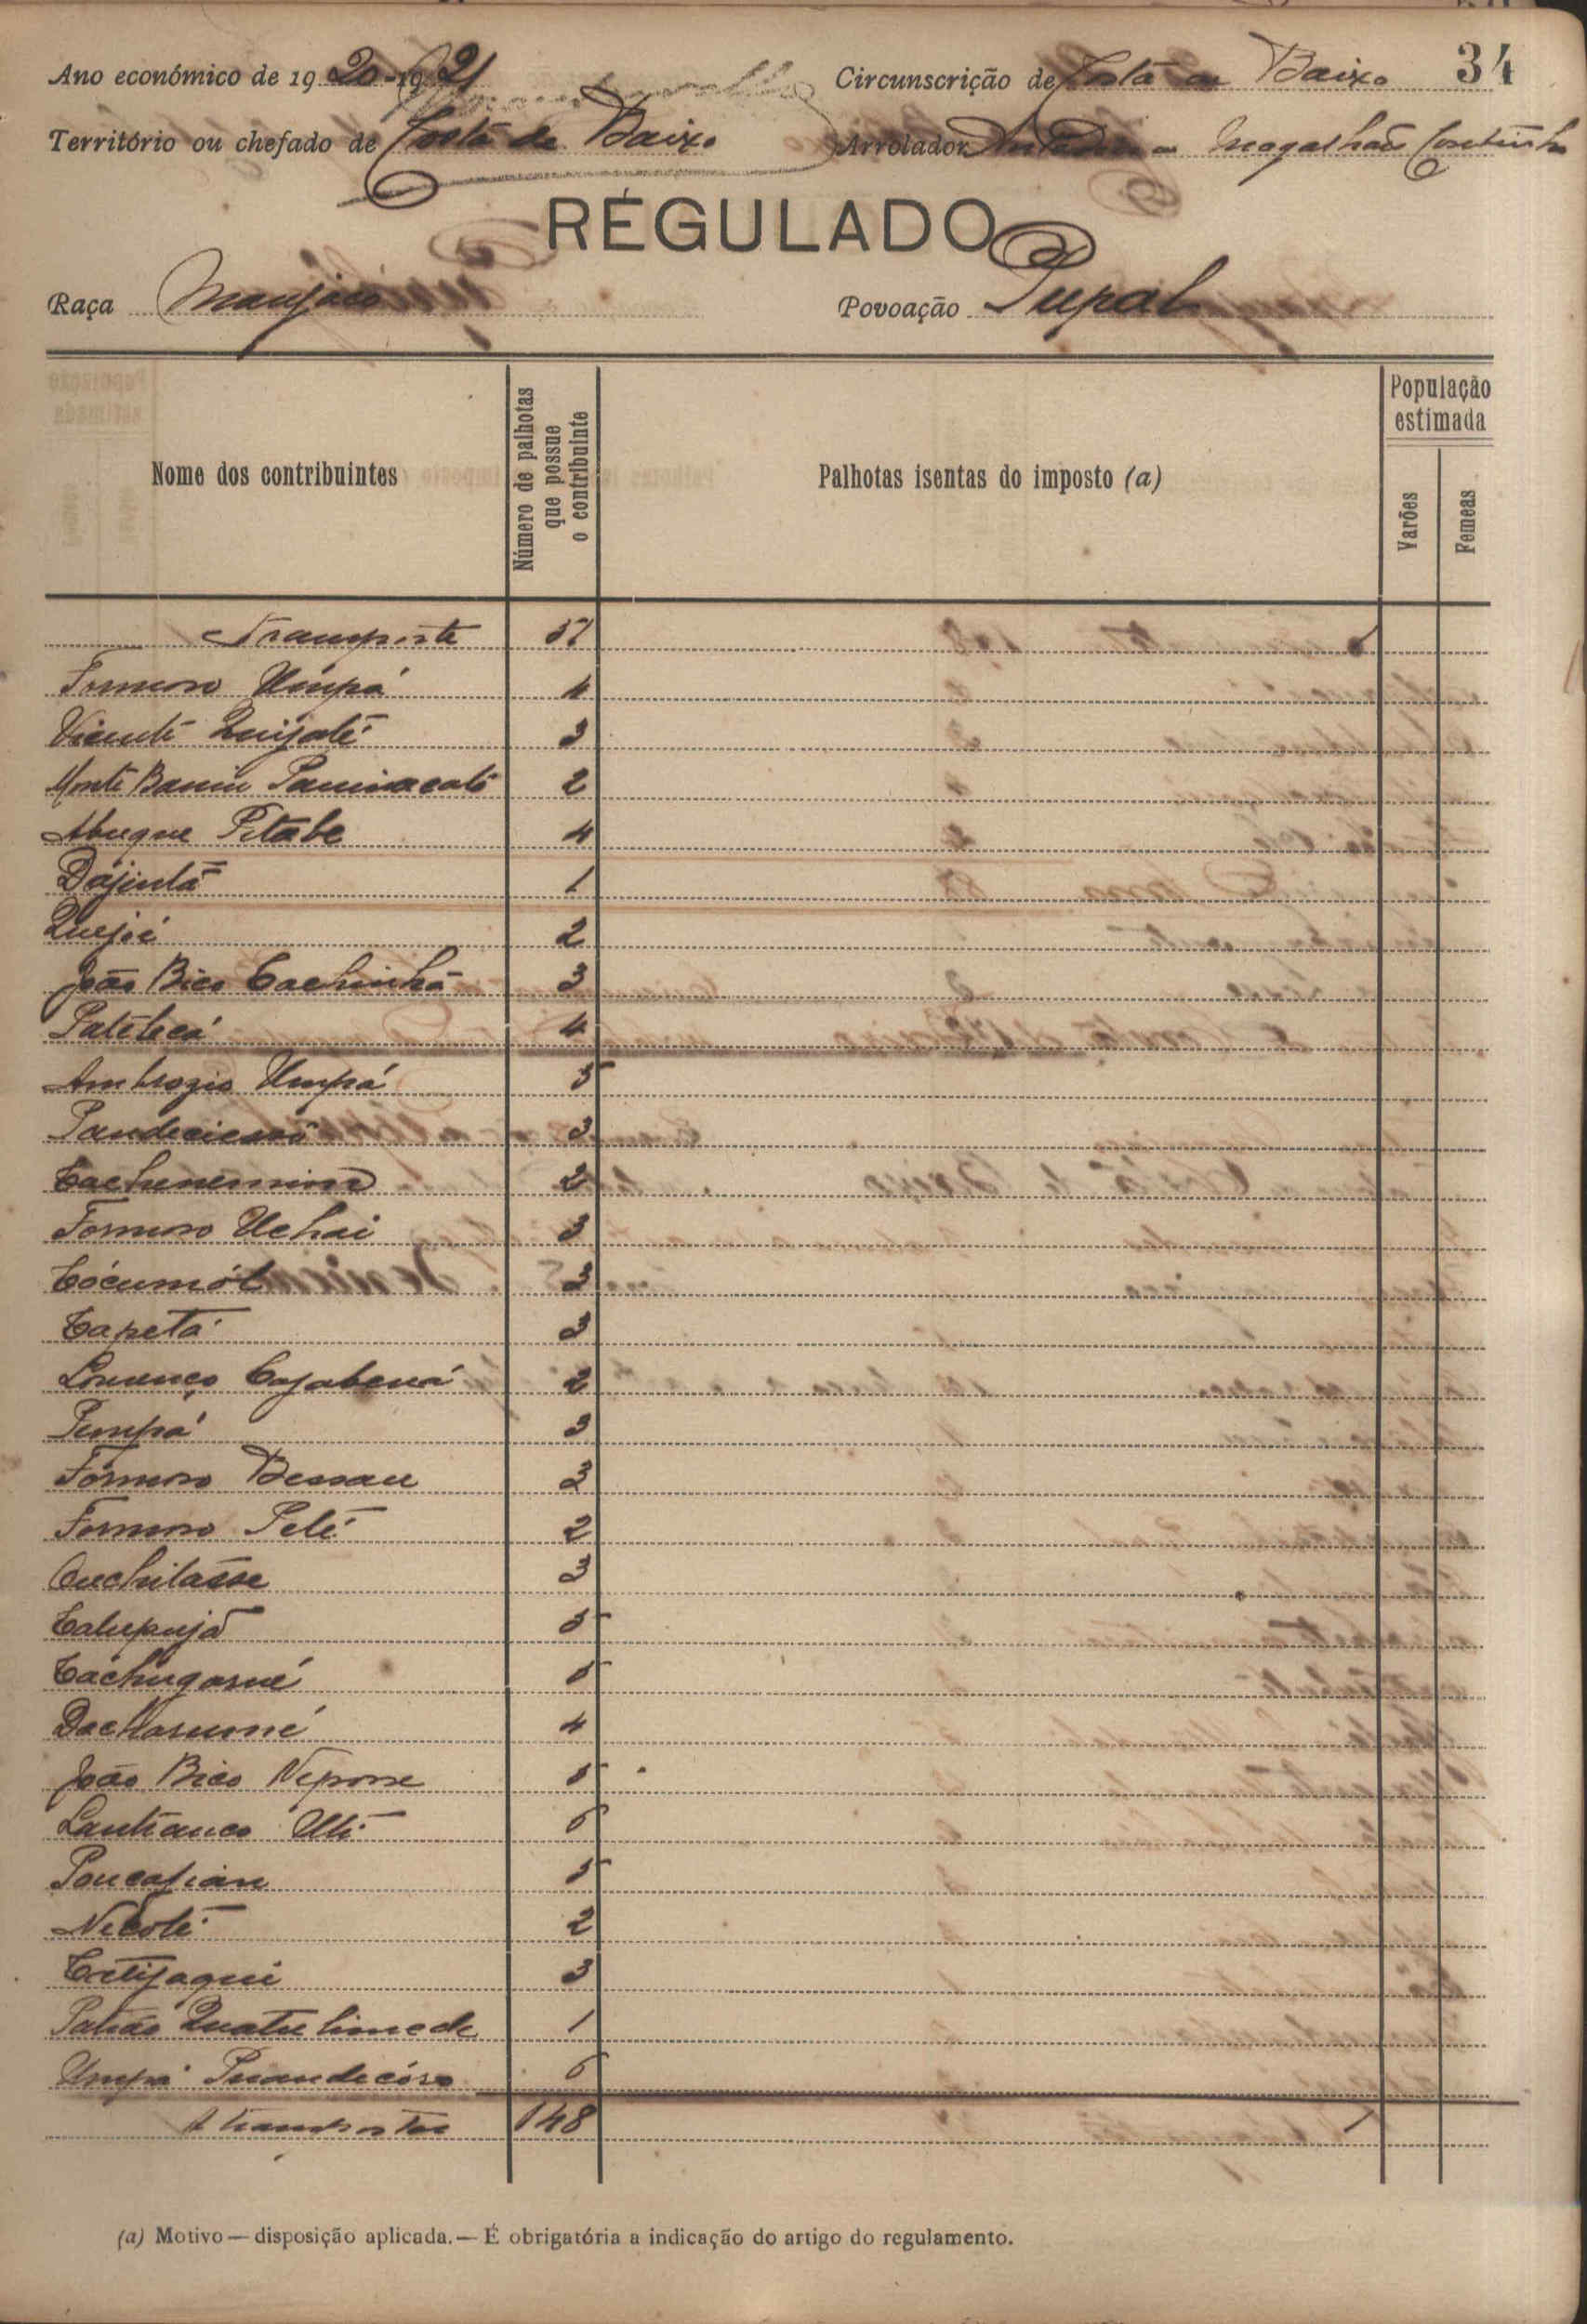 34
Ano económico de 1920-1921 Circunscrição de Costa de Baixo
Território ou chefado de Costa de Baixo Arrolador Magalhães Coutinho
REGULADO
Raça Manjaco Povoação Pupal
Nome dos contribuintes
Número de palhotas que possue o contribuinte
Palhotas isentas do imposto (a)
População estimada
Varões
Femeas
Transporte 57
Fornoro Umpá 4
Vicente Quijolé 3
Monte Banin 2
Abuque Pitabe 4
Dájintá 1
Quejoé 2
João Bico Cachinhá 3
Patéteca 4
Ambrozio Umpá 5
3
2
Fornoro Uchai 3
Cócumól 3
Capetá 3
Lourenço Cajabená 2
Pumpá 3
Fornoro Bessau 3
Fornoro Pelé 2
Cuchilasse 3
Calupujá 5
Cachugarné 5
Dachasumé 4
João Bico Neponse 5
6
Poucafian 5
Necoté 2
Critijaqui 3
1
Umpá Puandecóro 6
A transportar 148
(a) Motivo — disposição aplicada. — É obrigatória a indicação do artigo do regulamento.